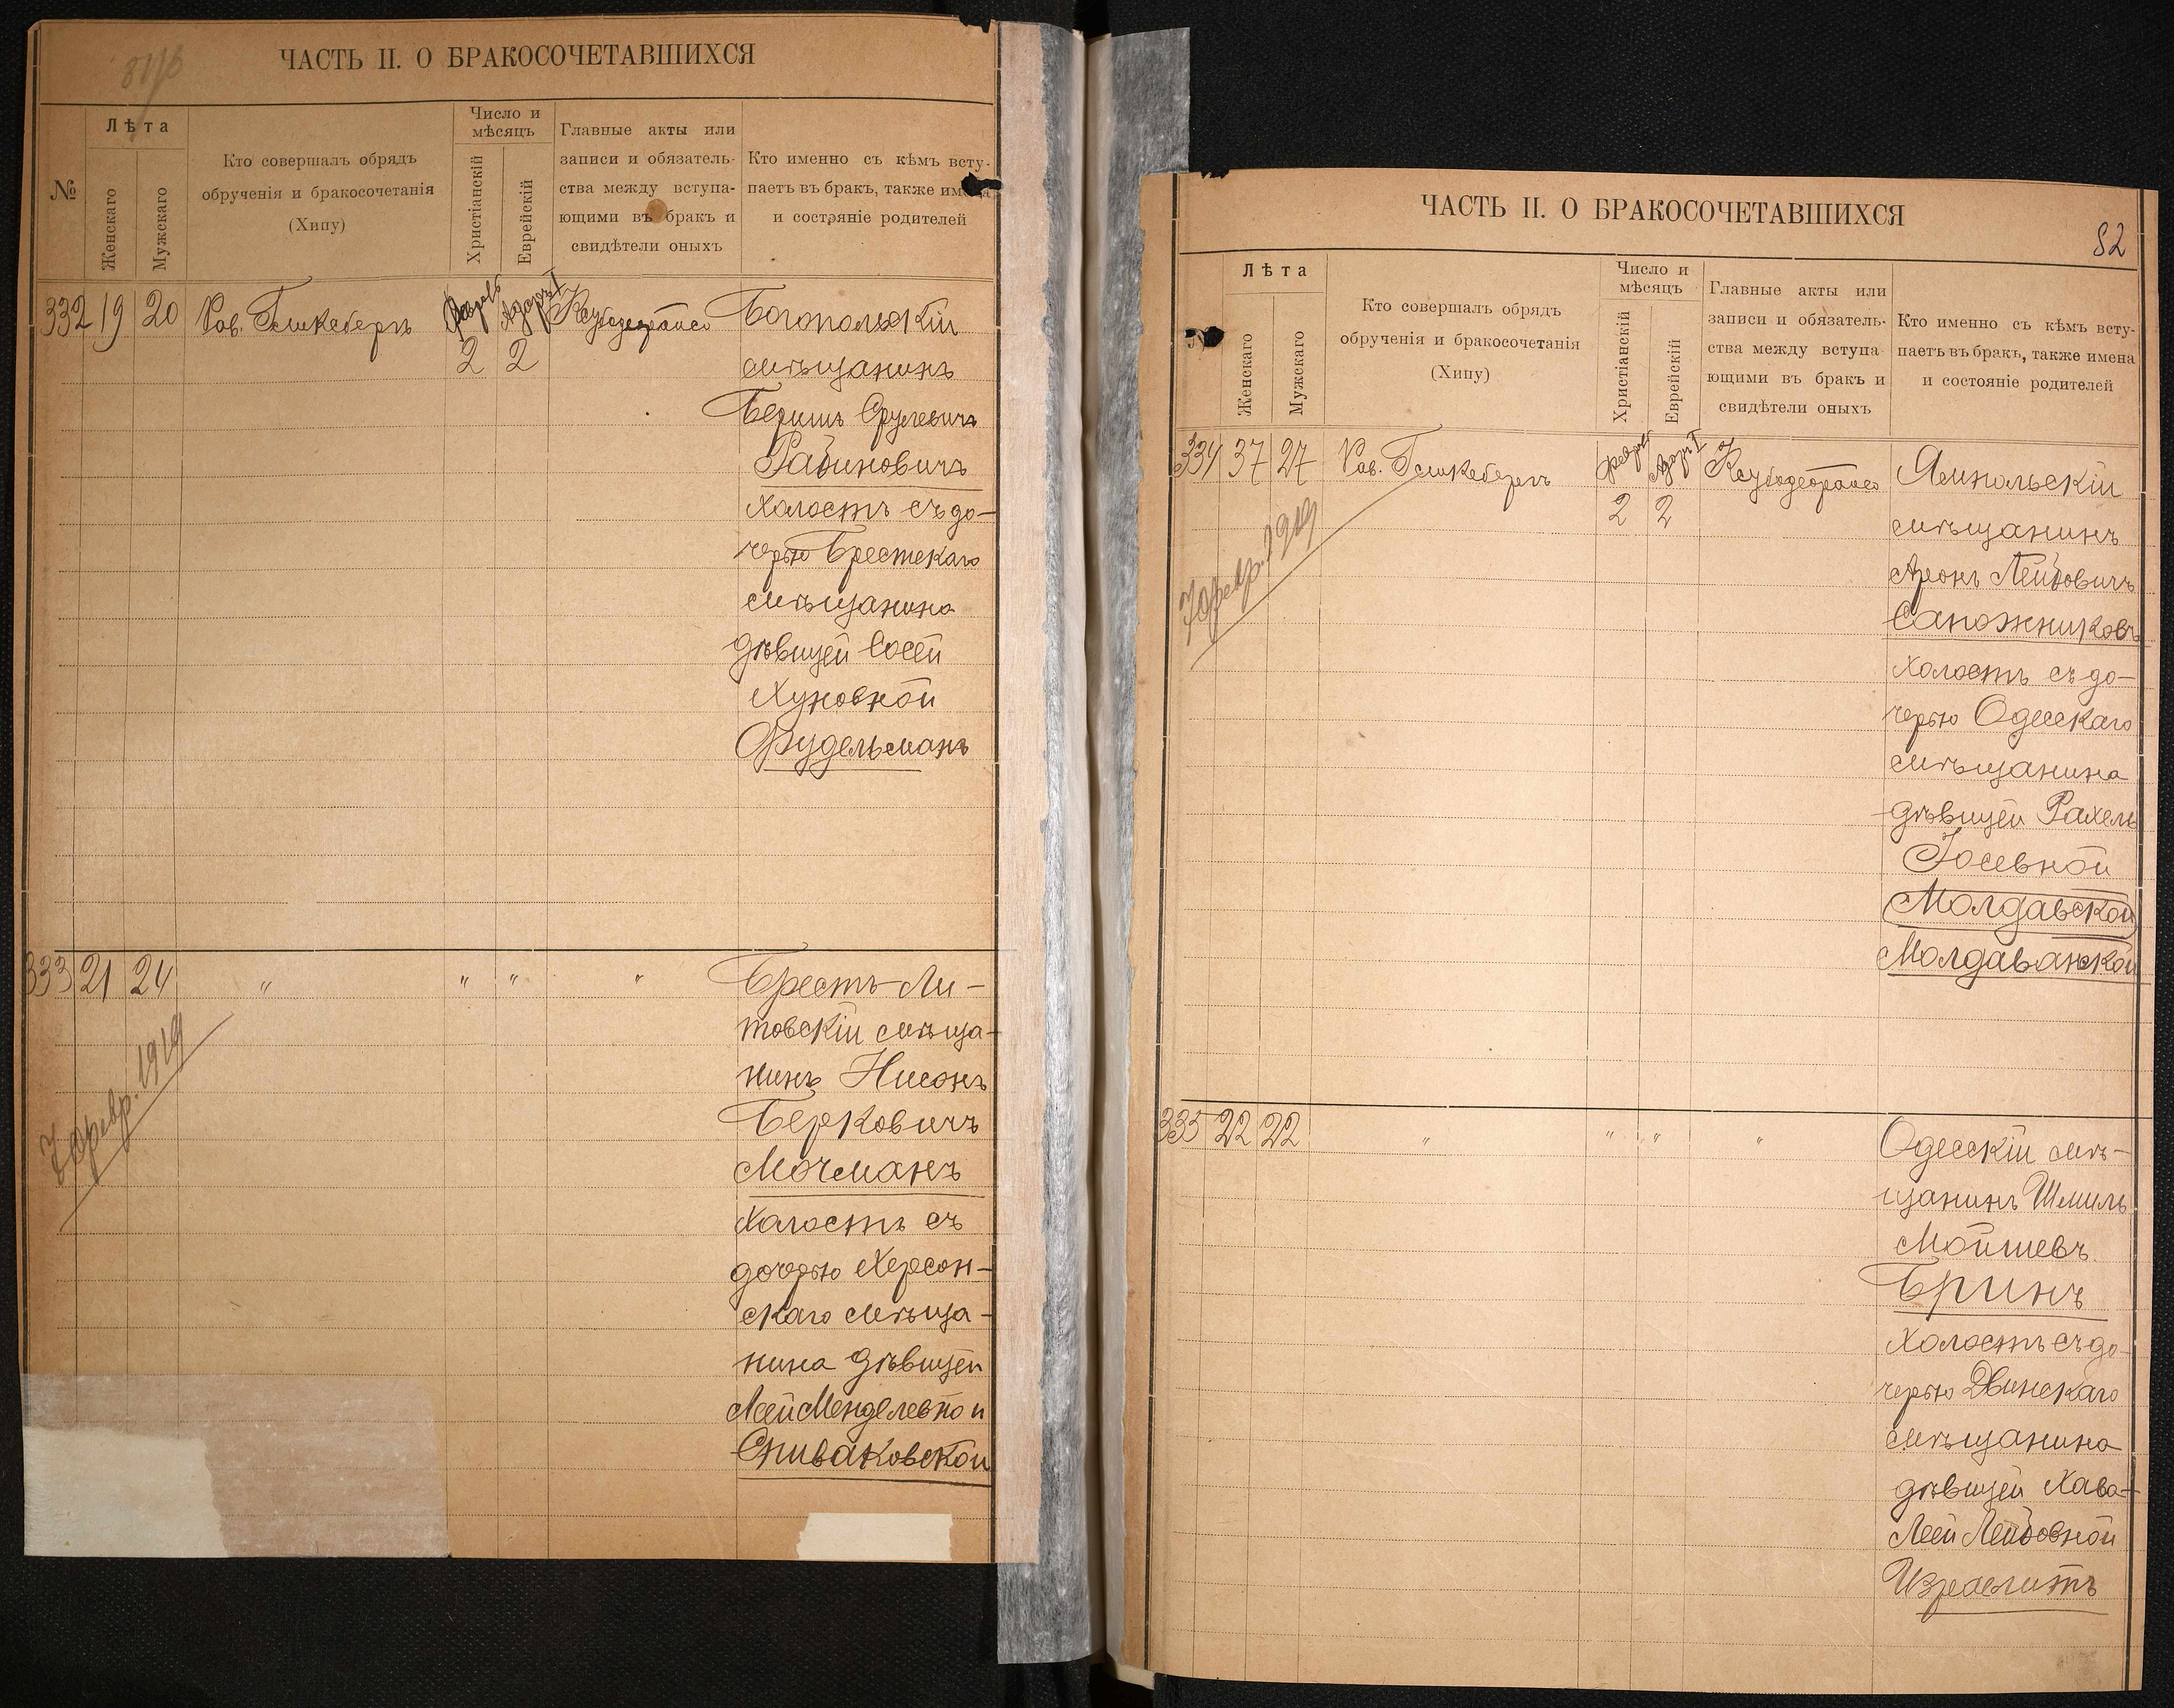 ЧАСТЬ II. О БРАКОСОЧЕТАВШИХСЯ
№
Лѣта
Женскаго
Мужскаго
Кто совершалъ обрядъ
обрученія и бракосочетанія
(Хипу)
Число и
мѣсяцъ
Христіанскій
Еврейскій
Главные акты или
записи и обязатель-
ства между вступа-
ющими въ бракъ и
свидѣтели оныхъ
Кто именно съ кѣмъ всту-
паетъ въ бракъ, также имена
и состряніе родителей
332 19 20 Рав.
2 2
Богопольскій
мѣщанинъ
Беришъ Срулевичъ
Рабиновичъ
холостъ съ до-
черью Брестскаго
мѣщанина
дѣвицей Сосей
Хуновной
Фудельманъ
333 21 24 " " " "
7 февр. 1919
Брестъ-Ли-
товскій мѣща-
нинъ Нисонъ
Берковичъ
Мочманъ
холостъ съ
дочерью Херсон-
скаго мѣща-
нина дѣвицей
Леей Менделевной
Спиваковской
ЧАСТЬ II. О БРАКОСОЧЕТАВШИХСЯ
82
Лѣта
Женскаго
Мужскаго
Кто совершалъ обрядъ
обрученія и бракосочетанія
(Хипу)
Число и
мѣсяцъ
Христіанскій
Еврейскій
Главные акты или
записи и обязатель-
ства между вступа
ющими въ бракъ и
свидѣтели оныхъ
Кто именно съ кѣмъ всту-
паетъ въ бракъ, также имена
и состояніе родителей
334 37 27 Рав.
2 2
7 февр. 1919
Ямпольскій
мѣщанинъ
Аронъ Лейбовичъ
Сапожниковъ
холостъ съ до-
черью Одесскаго
мѣщанина
дѣвицей Рахель
Іосевной
Молдавской
Молдаванской
335 22 22 " " " "
Одесскій мѣ-
щанинъ Шмиль
Мойшевъ
Бринъ
холостъ съ до-
черью Двинскаго
мѣщанина
дѣвицей Хава-
Леей Лейбовной
Израелитъ